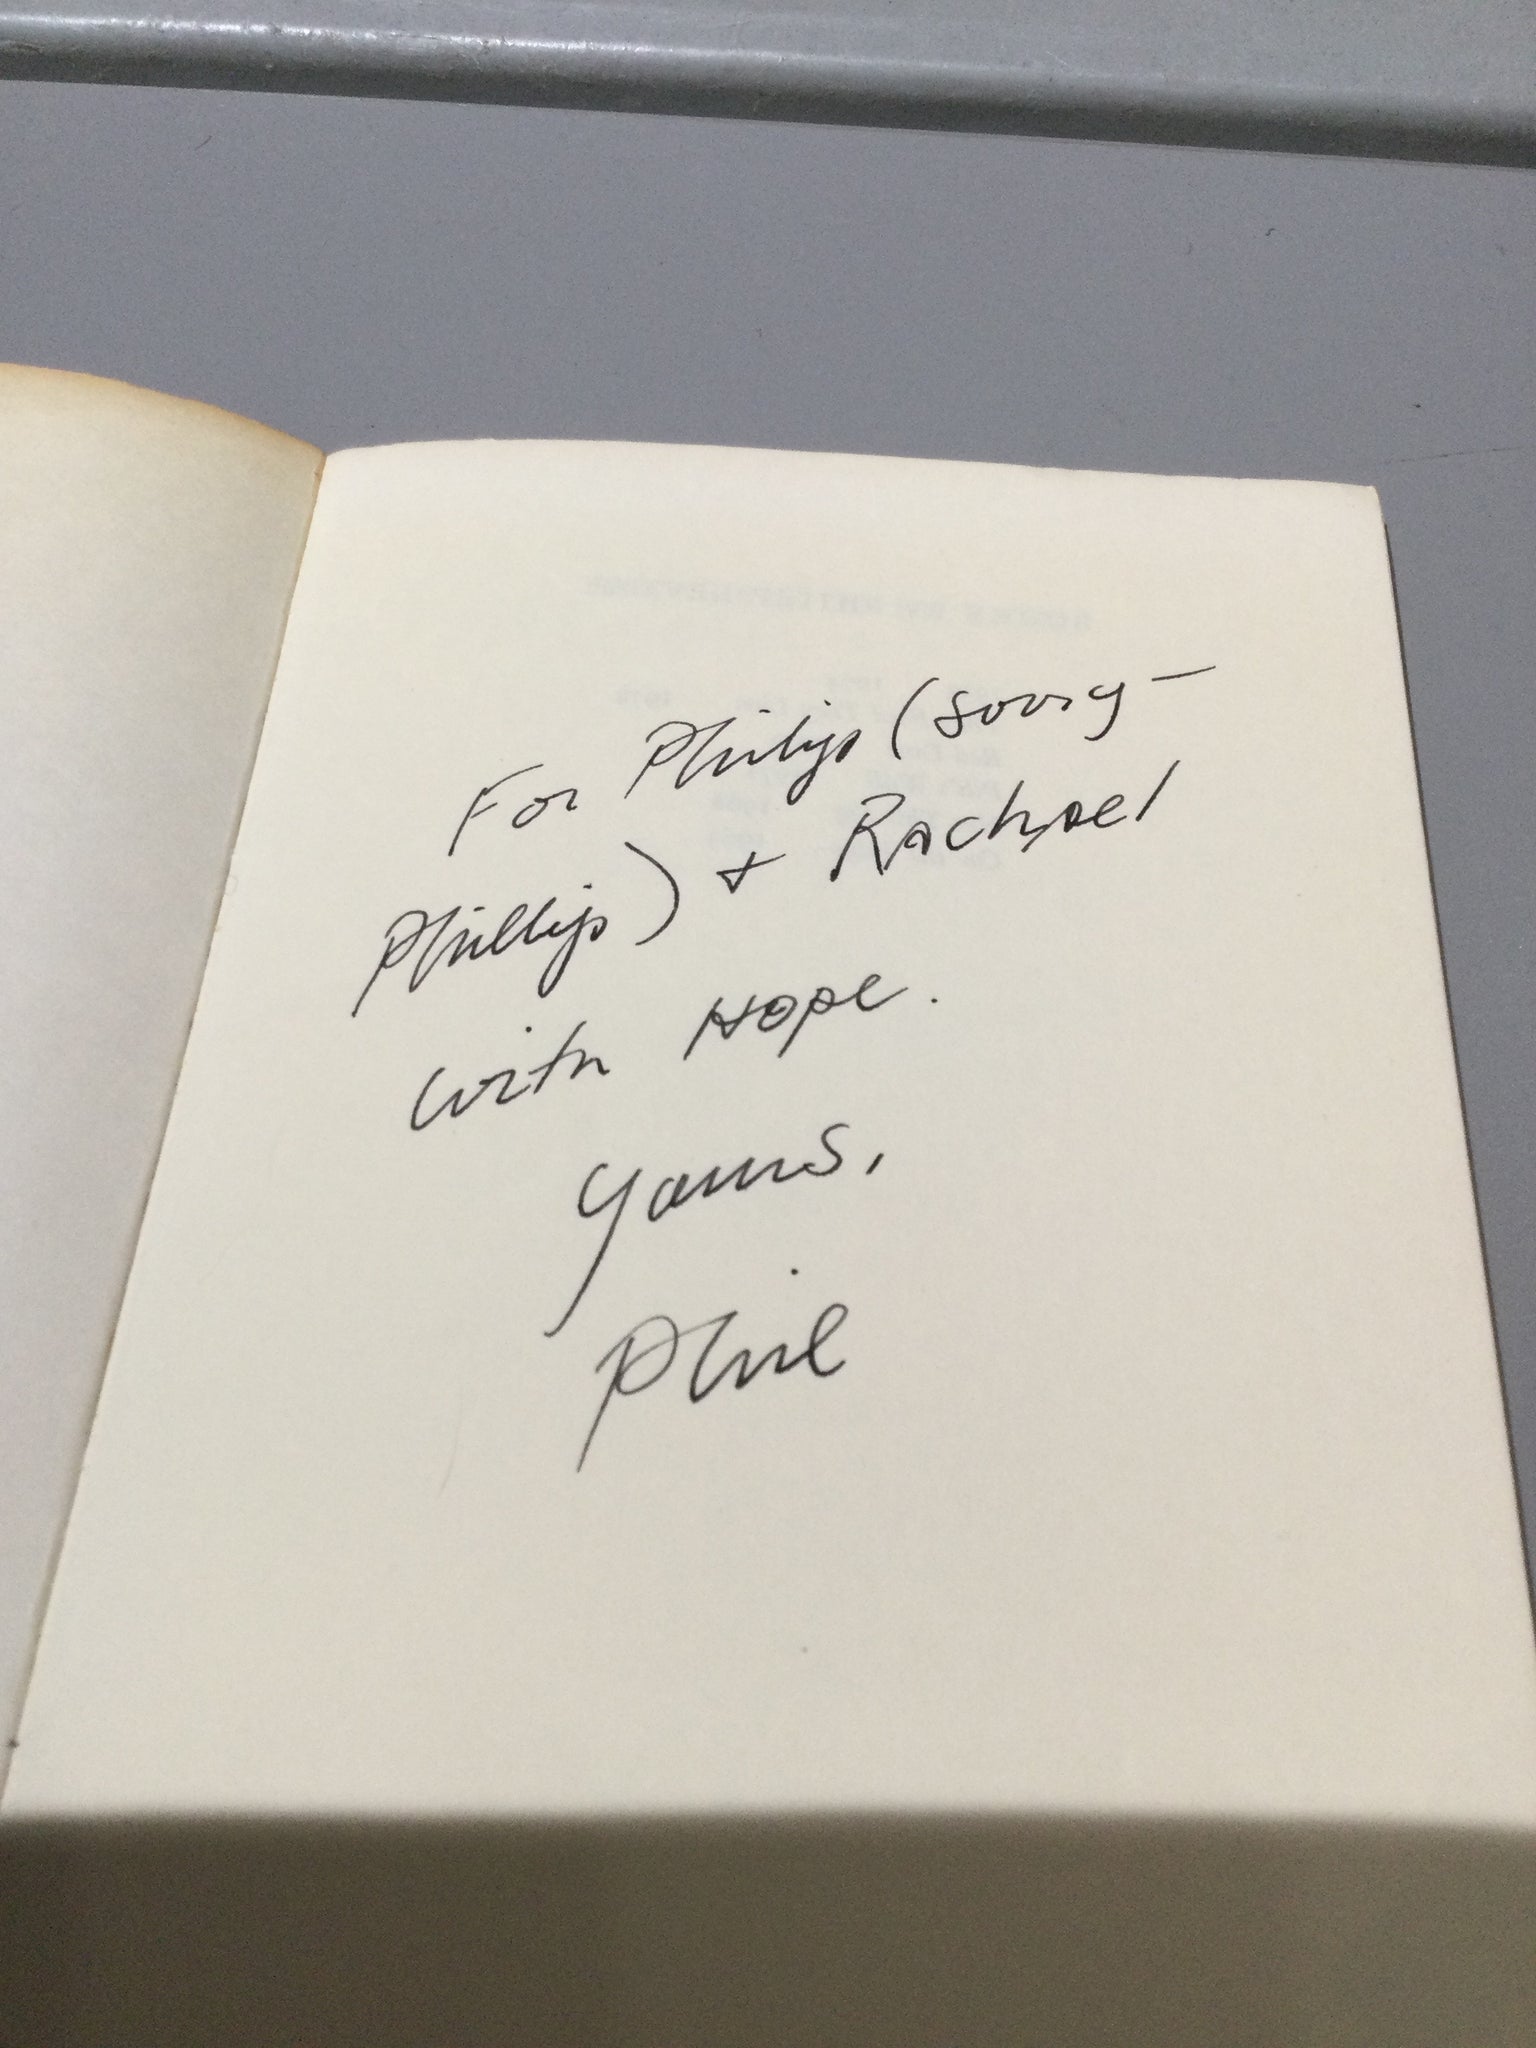 For Philip (sorry –
Phillip) + Rachael
with Hope.
Yours,
Phil